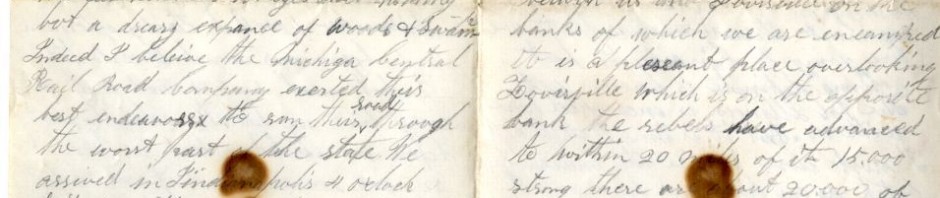 but a dreary expance of woods & Swam
Indeed I beleive the Michiga Central
Rail Road Company exerted this
best endeavors to run their road through
the worst part of the state We
arrived in Indianapolis 4 oclock
on the
banks of which we are encamped
it is a plesant place overlooking
Lovisville which is on the opporite
bank the rebels have advanced
to within 20 miles of it 15.000
strong there are about 20.000 of